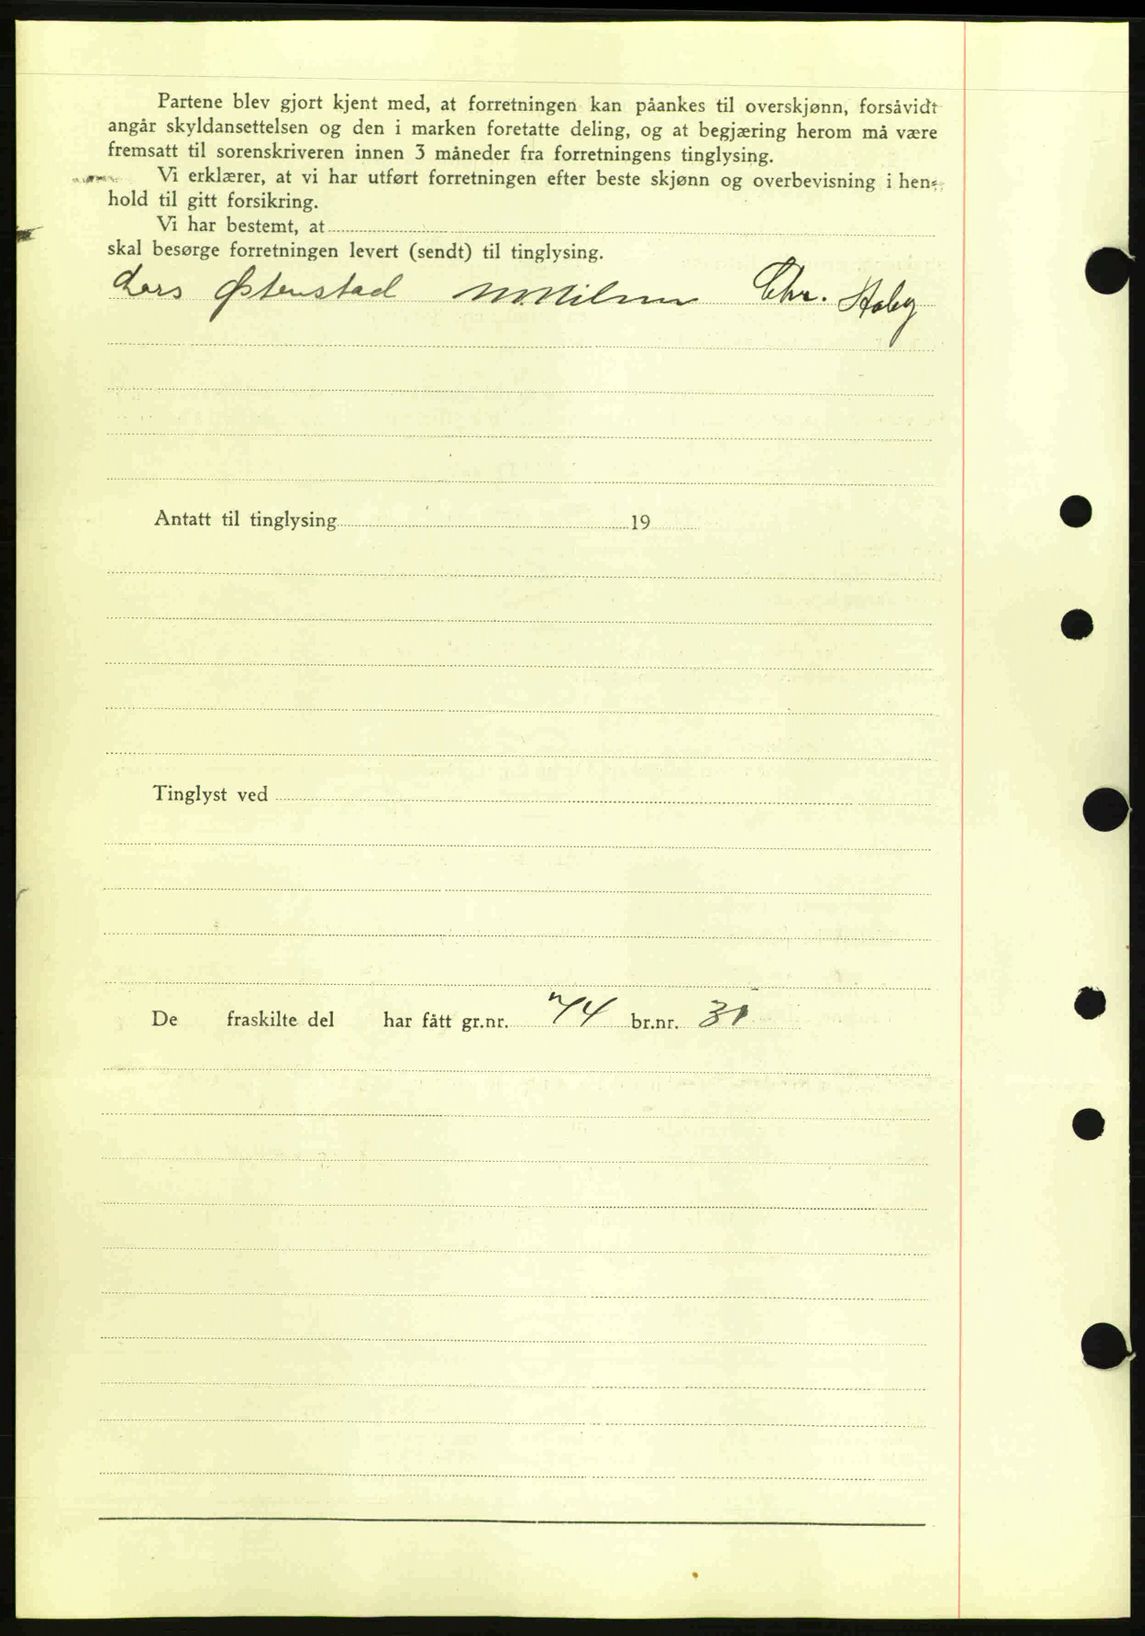 Partene blev gjort kjent med, at forretningen kan påankes til overskjønn, forsåvidt
angår skyldansettelsen og den i marken foretatte deling, og at begjæring herom må være
fremsatt til sorenskriveren innen 3 måneder fra forretningens tinglysing.
Vi erklærer, at vi har utført forretningen efter beste skjønn og overbevisning i hen-
hold til gitt forsikring.
Vi har bestemt, at
skal besørge forretningen levert (sendt) til tinglysing.
Lars Østenstad Chr. Haby
Antatt til tinglysing 19
Tinglyst ved
De fraskilte del har fått gr.nr. 74 br.nr. 31